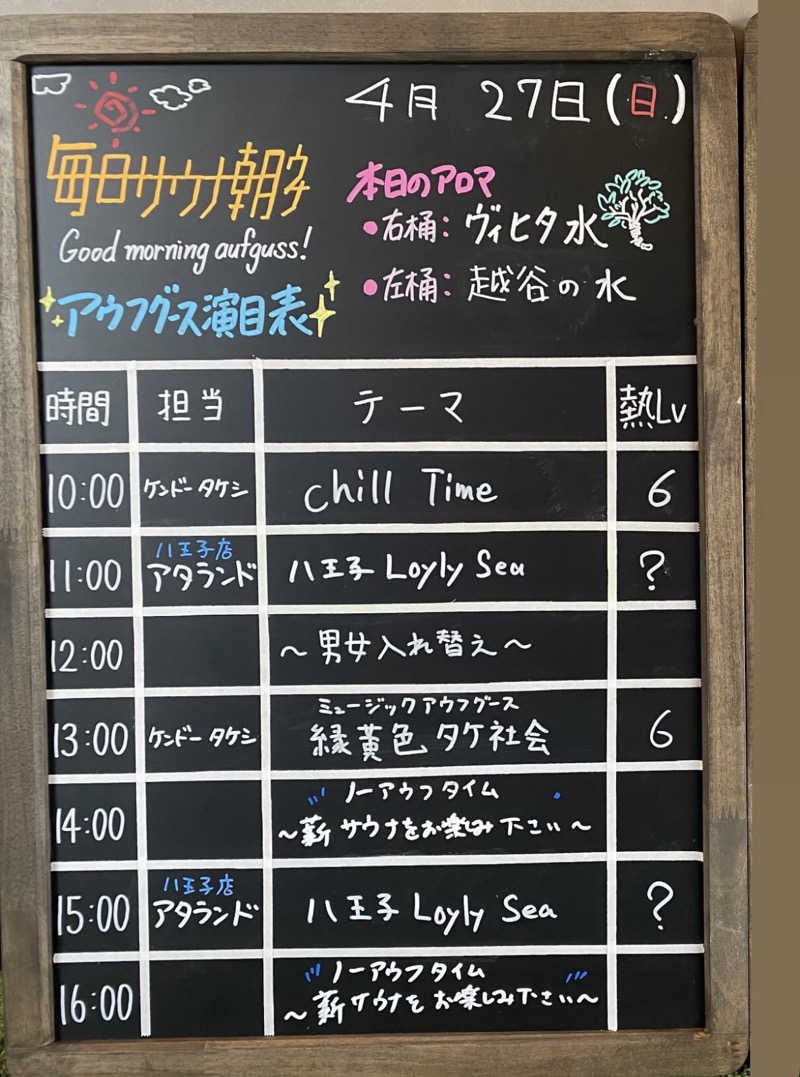 4月 27日(日)
毎日サウナ朝タ
Good morning aufguss!
アウフグース演目表
本日のアロマ
•右桶: ヴィヒタ水
•左桶: 越谷の水
時間 担当 テーマ 熱Lv
10:00 ケンドータケシ chill Time 6
八王子店
11:00 アタランド 八王子 Loyly Sea ?
12:00 〜男女入れ替え〜
ミュージックアウフグース
13:00 ケンドータケシ 緑黄色タケ社会 6
ノーアウフタイム
14:00 〜薪サウナをお楽しみ下さい〜
八王子店
15:00 アタランド 八王子 Loyly Sea ?
ノーアウフタイム
16:00 〜薪サウナをお楽しみ下さい〜